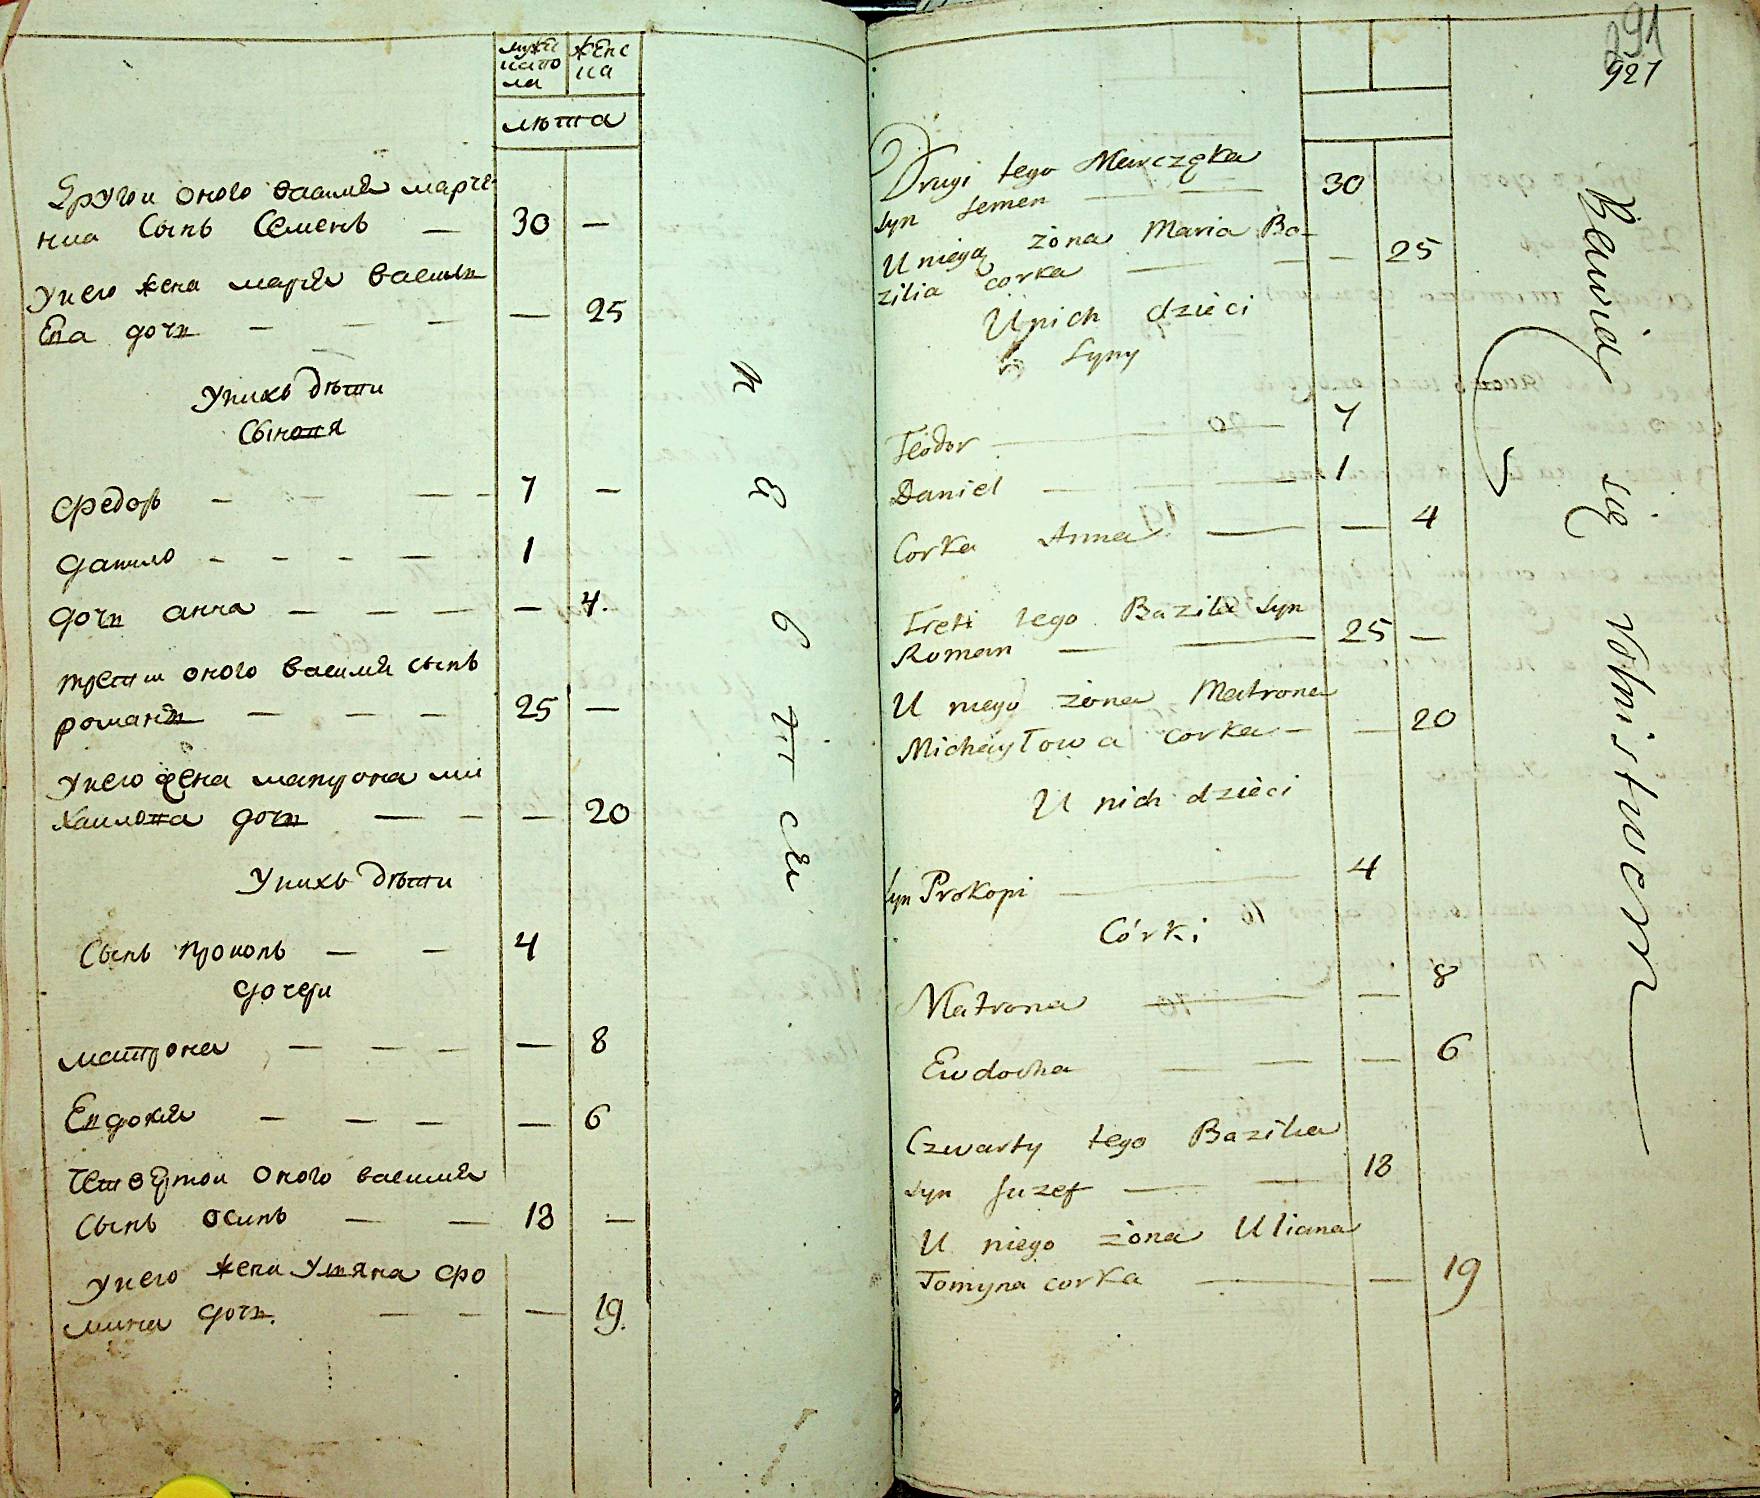 мужеска пола
женска
лѣта
Другои оного василия марче
нка Сынъ Семенъ — 30 —
Унего жена мария васили
Ева дочь — — — — 25
Унихъ дѣти
Сыновя
Федоръ — — — — 7 —
данило — — — — 1
дочь анна — — — — 4.
третии оного василия сынъ
романъ — — — 25 —
Унего жена матрона ми
хаилова дочь — — — 20
Унихъ дѣти
Сынъ прокопъ — — 4
дочери
матрона — — — — 8
Евдокия — — — — 6
Четвертои оного василия
Сынъ осипъ — — 18 —
Унего жена Уляна фо
мина дочь. — — — 19.
291
927
Drugi tego Marczęka
Syn Semen — — 30
U niego żona Maria Ba-
zilia corka — — — 25
U nich dzieci
Syny
Teodor — 7
Daniel — — 1
Corka Anna — — 4
Treti tego Bazila Syn
Roman — — 25 —
U niego żona Matrona
Michayłowa corka — — 20
U nich dzieci
Syn Prokopi — 4
Córki
Matrona — — 8
Ewdocha — — — 6
Czwarty tego Bazilia
Syn Juzef — — 18
U niego żona Uliana
Tomyna corka — — 19
Bawią się rolnistwem